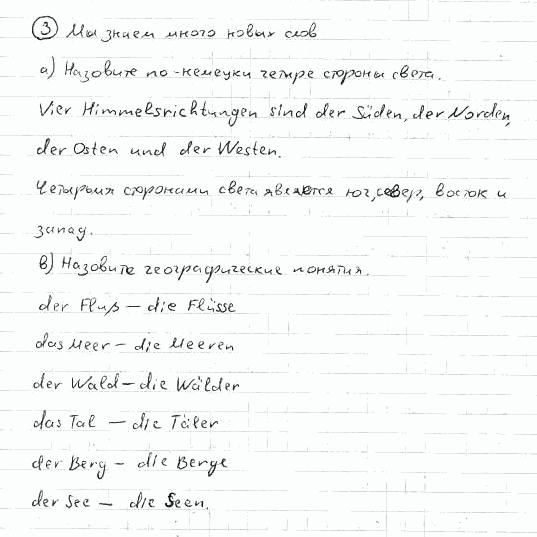 ③ Мы знаем много новых слов
а) Назовите по-немецки четыре стороны света.
Vier Himmelsrichtungen sind der Süden, der Norden,
der Osten und der Westen.
Четырьмя сторонами света являются юг, север, восток и
запад.
в) Назовите географические понятия.
der Fluß – die Flüsse
das Meer – die Meeren
der Wald – die Wälder
das Tal – die Täler
der Berg – die Berge
der See – die Seen.